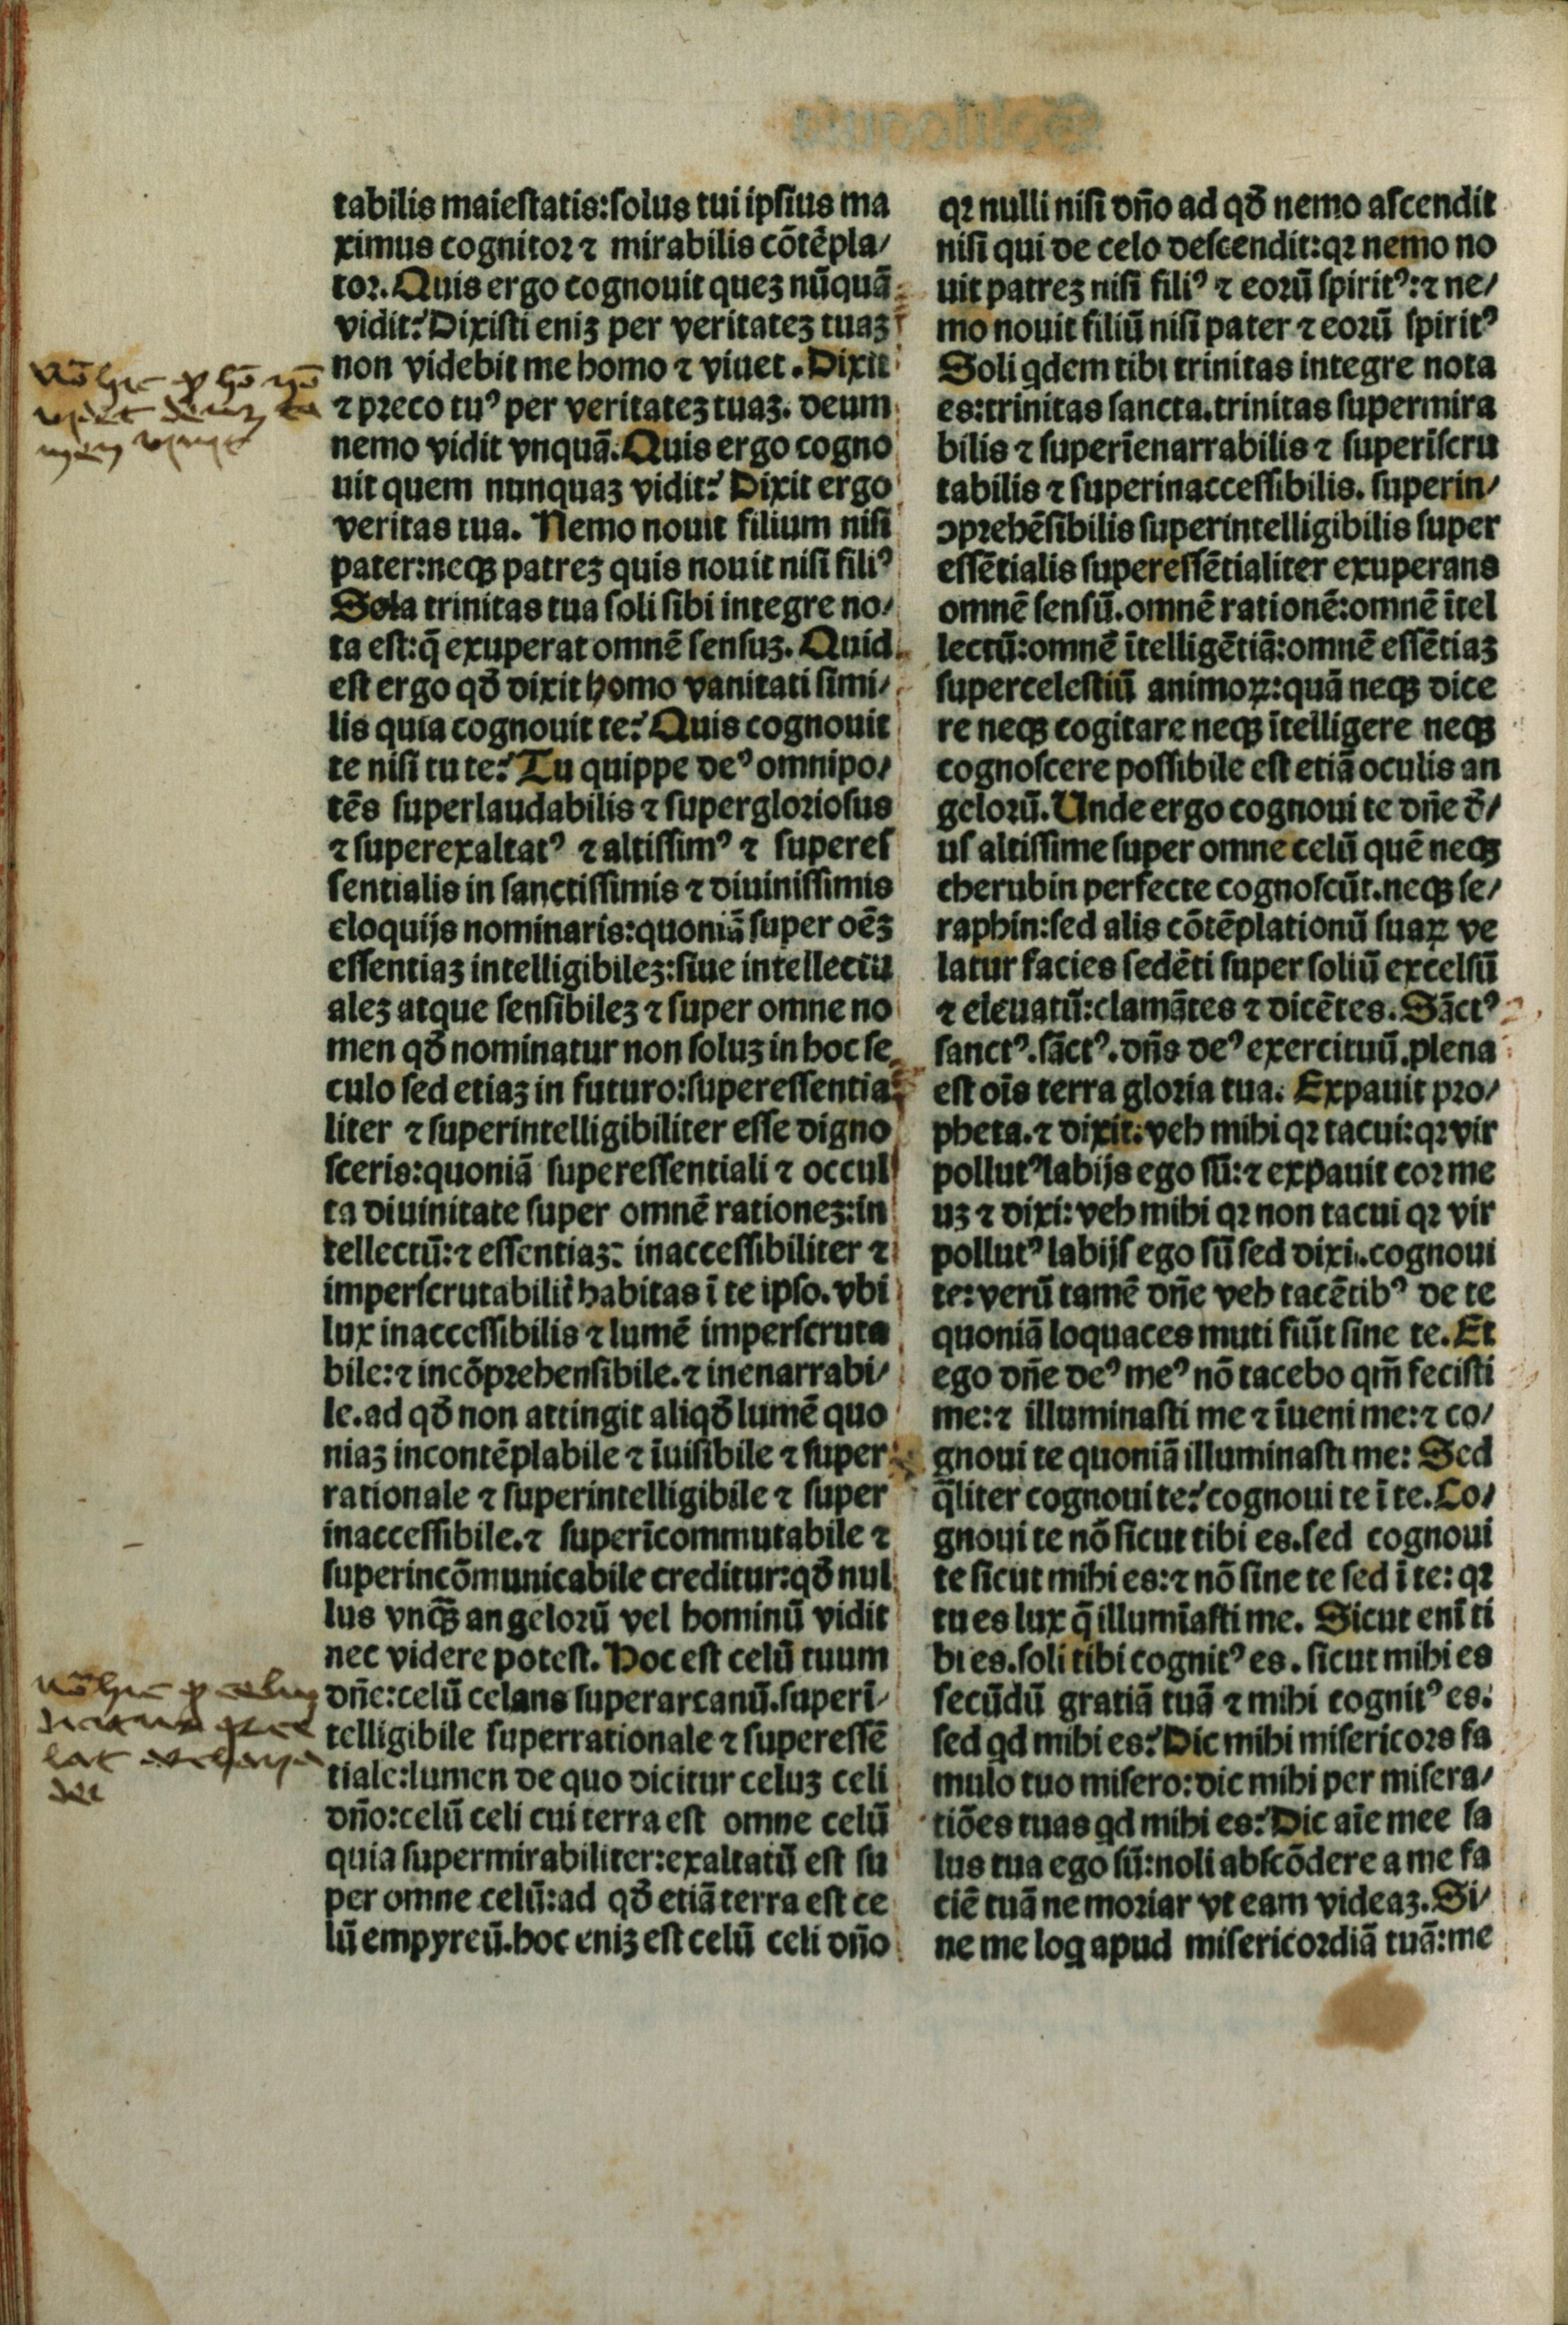 tabilis maiestatis:solus tui ipsius ma
ximus cognitor ⁊ mirabilis cõtẽpla/
tor. Quis ergo cognouit queʒ nũquã
vidit? Dixisti eniʒ per veritateʒ tuaʒ
non videbit me homo ⁊ viuet. Dixit
⁊ preco tuꝰ per veritateʒ tuaʒ. deum
nemo vidit vnquã. Quis ergo cogno
uit quem nunquaʒ vidit? Dixit ergo
veritas tua. Nemo nouit filium nisi
pater:neqꝫ patreʒ quis nouit nisi filiꝰ
Sola trinitas tua soli sibi integre no/
ta est:q̃ exuperat omnẽ sensuʒ. Quid
est ergo qð dixit homo vanitati simi/
lis quia cognouit te? Quis cognouit
te nisi tu te? Tu quippe deꝰ omnipo/
tẽs superlaudabilis ⁊ supergloriosus
⁊ superexaltatꝰ ⁊ altissimꝰ ⁊ superes
sentialis in sanctissimis ⁊ diuinissimis
eloquijs nominaris:quoniã super oẽʒ
essentiaʒ intelligibileʒ:siue intellectu
aleʒ atque sensibileʒ ⁊ super omne no
men qð nominatur non soluʒ in hoc se
culo sed etiaʒ in futuro:superessentia
liter ⁊ superintelligibiliter esse digno
sceris:quoniã superessentiali ⁊ occul
ta diuinitate super omnẽ rationeʒ:in
tellectũ:⁊ essentiaʒ: inaccessibiliter ⁊
imperscrutabilit̃ habitas ĩ te ipso. vbi
lux inaccessibilis ⁊ lumẽ imperscruta
bile:⁊ incõprehensibile.⁊ inenarrabi/
le. ad qð non attingit aliqð lumẽ quo
niaʒ incontẽplabile ⁊ ĩuisibile ⁊ super
rationale ⁊ superintelligibile ⁊ super
inaccessibile.⁊ superĩcommutabile ⁊
superincõmunicabile creditur:qð nul
lus vnqꝫ̃ angelorũ vel hominũ vidit
nec videre potest. Hoc est celũ tuum
dñe:celũ celans superarcanũ.superĩ/
telligibile superrationale ⁊ superessẽ
tiale:lumen de quo dicitur celuʒ celi
dño:celũ celi cui terra est omne celũ
quia supermirabiliter:exaltatũ est su
per omne celũ:ad qð etiã terra est ce
lũ empyreũ.hoc eniʒ est celũ celi dño
qꝛ nulli nisi dño ad qð nemo ascendit
nisi qui de celo descendit:qꝛ nemo no
uit patreʒ nisi filiꝰ ⁊ eorũ spiritꝰ:⁊ ne/
mo nouit filiũ nisi pater ⁊ eorũ spiritꝰ
Soli qdem tibi trinitas integre nota
es:trinitas sancta.trinitas supermira
bilis ⁊ superĩenarrabilis ⁊ superĩscru
tabilis ⁊ superinaccessibilis. superin/
ↄprehẽsibilis superintelligibilis super
essẽtialis superessẽtialiter exuperans
omnẽ sensũ.omnẽ rationẽ:omnẽ ĩtel
lectũ:omnẽ ĩtelligẽtiã:omnẽ essẽtiaʒ
supercelestiũ animoꝝ:quã neqꝫ dice
re neqꝫ cogitare neqꝫ ĩtelligere neqꝫ
cognoscere possibile est etiã oculis an
gelorũ. Unde ergo cognoui te dñe ð/
us altissime super omne celũ quẽ neqꝫ
cherubin perfecte cognoscũt.neqꝫ se/
raphin:sed alis cõtẽplationũ suaꝝ ve
latur facies sedẽti super soliũ excelsũ
⁊ eleuatũ:clamãtes ⁊ dicẽtes. Sãctꝰ
sanctꝰ.sãctꝰ.dñs deꝰ exercituũ.plena
est oĩs terra gloria tua. Expauit pro/
pheta.⁊ dixit:veh mihi qꝛ tacui:qꝛ vir
pollutꝰ labijs ego sũ:⁊ expauit cor me
uʒ ⁊ dixi:veh mihi qꝛ non tacui qꝛ vir
pollutꝰ labijs ego sũ sed dixi..cognoui
te:verũ tamẽ dñe veh tacẽtibꝰ de te
quoniã loquaces muti fiũt sine te. Et
ego dñe deꝰ meꝰ nõ tacebo qm̃ fecisti
me:⁊ illuminasti me ⁊ ĩueni me:⁊ co/
gnoui te quoniã illuminasti me: Sed
q̃liter cognoui te? cognoui te ĩ te. Co/
gnoui te nõ sicut tibi es.sed cognoui
te sicut mihi es:⁊ nõ sine te sed ĩ te: qꝛ
tu es lux q̃ illumĩasti me. Sicut enĩ ti
bi es.soli tibi cognitꝰ es. sicut mihi es
secũdũ gratiã tuã ⁊ mihi cognitꝰ es:
sed qd mihi es? Dic mihi misericors fa
mulo tuo misero:dic mihi per misera/
tiões tuas qd mihi es? Dic aĩe mee sa
lus tua ego sũ:noli abscõdere a me fa
ciẽ tuã ne moriar vt eam videaʒ. Si/
ne me loq apud misericordiã tuã:me